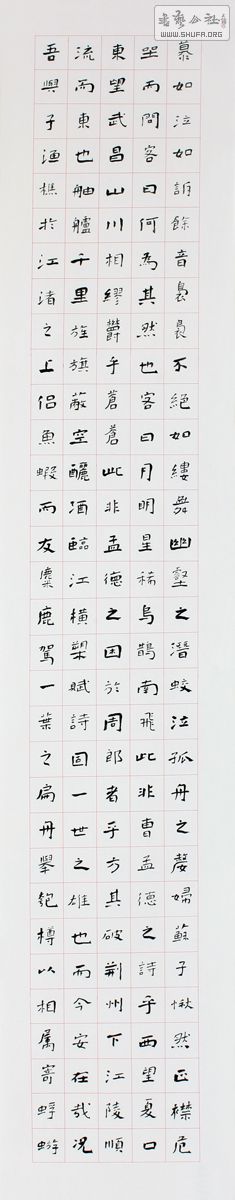 書藝公社
WWW.SHUFA.ORG
慕如泣如訴餘音裊裊不絕如縷舞幽壑之潛蛟泣孤舟之嫠婦蘇子愀然正襟危
坐而問客曰何為其然也客曰月明星稀烏鵲南飛此非曹孟德之詩乎西望夏口
東望武昌山川相繆鬱乎蒼蒼此非孟德之困於周郎者乎方其破荊州下江陵順
流而東也舳艫千里旌旗蔽空釃酒臨江橫槊賦詩固一世之雄也而今安在哉況
吾與子漁樵於江渚之上侶魚蝦而友麋鹿駕一葉之扁舟舉匏樽以相屬寄蜉蝣